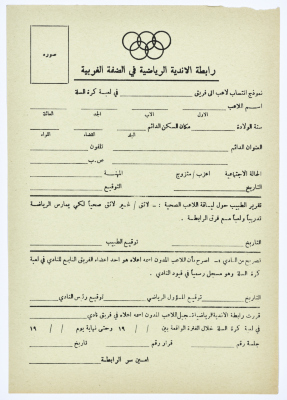 صورة
رابطة الاندية الرياضية في الضفة الغربية
نموذج انتساب لاعب الى فريقي في لعبة كرة السلة
اسم اللاعب
الاول الاب الجد العائلة
سنة الولادة مكان السكن الدائم
البلد القضاء اللواء
العنوان الدائم تلفون
ص.ب
الحالة الاجتماعية اعزب / متزوج المهنة
التاريخ التوقيع
تقرير الطبيب حول لياقة اللاعب الصحية : ـ لائق / غير لائق صحياً لكي يمارس الرياضة
تدريباً ولعباً ضمن فرق الرابطة .
التاريخ توقيع الطبيب
تصريح من النادي : ـ اصرح بأن اللاعب المدون اسمه اعلاه هو احد اعضاء الفريق التابع للنادي في لعبة
كرة السلة وهو مسجل رسمياً في قيود النادي .
التاريخ توقيع المسؤول الرياضي توقيع رئيس النادي
قررت رابطة الاندية الرياضية تسجيل اللاعب المدون اسمه اعلاه في فريق نادي
في لعبة كرة السلة خلال الفترة الواقعة بين / / ١٩ وحتى نهاية يوم / / ١٩
جلسة رقم قرار رقم التاريخ
امين سر الرابطة